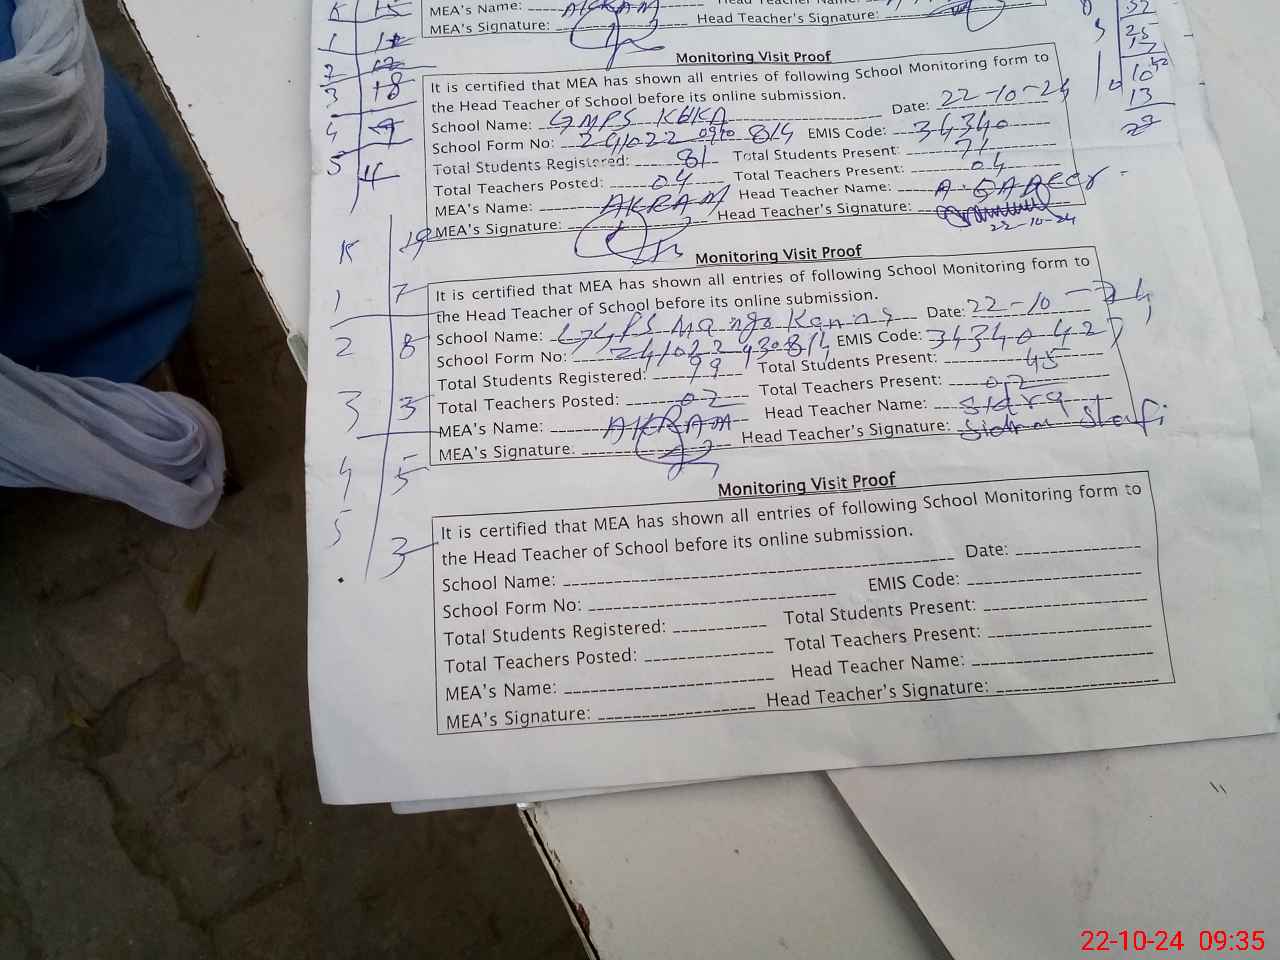 MEA's Name: AKRAM Head Teacher Name:
MEA's Signature: Head Teacher's Signature:
Monitoring Visit Proof
It is certified that MEA has shown all entries of following School Monitoring form to
the Head Teacher of School before its online submission.
School Name: GMPS Date: 22-10-24
School Form No: 241022 0910 814 EMIS Code: 34340
Total Students Registered: 81 Total Students Present: 71
Total Teachers Posted: 04 Total Teachers Present: 04
MEA's Name: AKRAM Head Teacher Name:
MEA's Signature: Head Teacher's Signature:
22-10-24
K 19
1 7
2 8
3 3
4 5
5 3
Monitoring Visit Proof
It is certified that MEA has shown all entries of following School Monitoring form to
the Head Teacher of School before its online submission.
School Name: GGPS Mango Date: 22-10-24
School Form No: 241022 930814 EMIS Code: 34340427
Total Students Registered: Total Students Present: 45
Total Teachers Posted: 02 Total Teachers Present: 02
MEA's Name: AKRAM Head Teacher Name: Sidra
MEA's Signature: Head Teacher's Signature: Sidra
Monitoring Visit Proof
It is certified that MEA has shown all entries of following School Monitoring form to
the Head Teacher of School before its online submission.
School Name: Date:
School Form No: EMIS Code:
Total Students Registered: Total Students Present:
Total Teachers Posted: Total Teachers Present:
MEA's Name: Head Teacher Name:
MEA's Signature: Head Teacher's Signature:
22-10-24 09:35